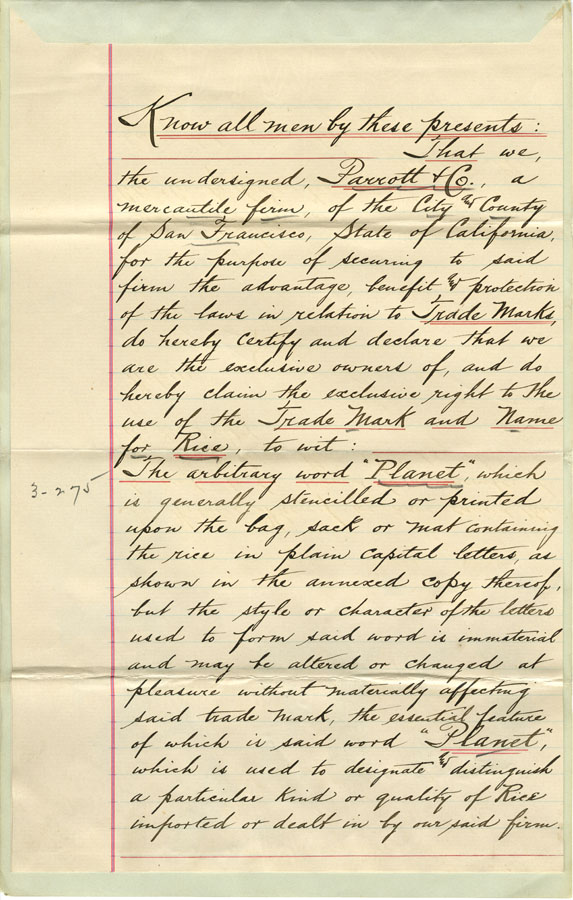 Know all men by these presents:
That we,
the undersigned, Parrott & Co., a
mercantile firm, of the City & County
of San Francisco, State of California,
for the purpose of securing to said
firm the advantage, benefit & protection
of the laws in relation to Trade Marks,
do hereby certify and declare that we
are the exclusive owners of, and do
hereby claim the exclusive right to the
use of the Trade Mark and Name
for Rice, to wit:
The arbitrary word "Planet", which
is generally stencilled or printed
3-2-75
upon the bag, sack or mat containing
the rice in plain capital letters, as
shown in the annexed copy thereof,
but the style or character of the letters
used to form said word is immaterial
and may be altered or changed at
pleasure without materially affecting
said trade mark, the essential feature
of which is said word "Planet",
which is used to designate & distinguish
a particular kind or quality of Rice
imported or dealt in by our said firm.